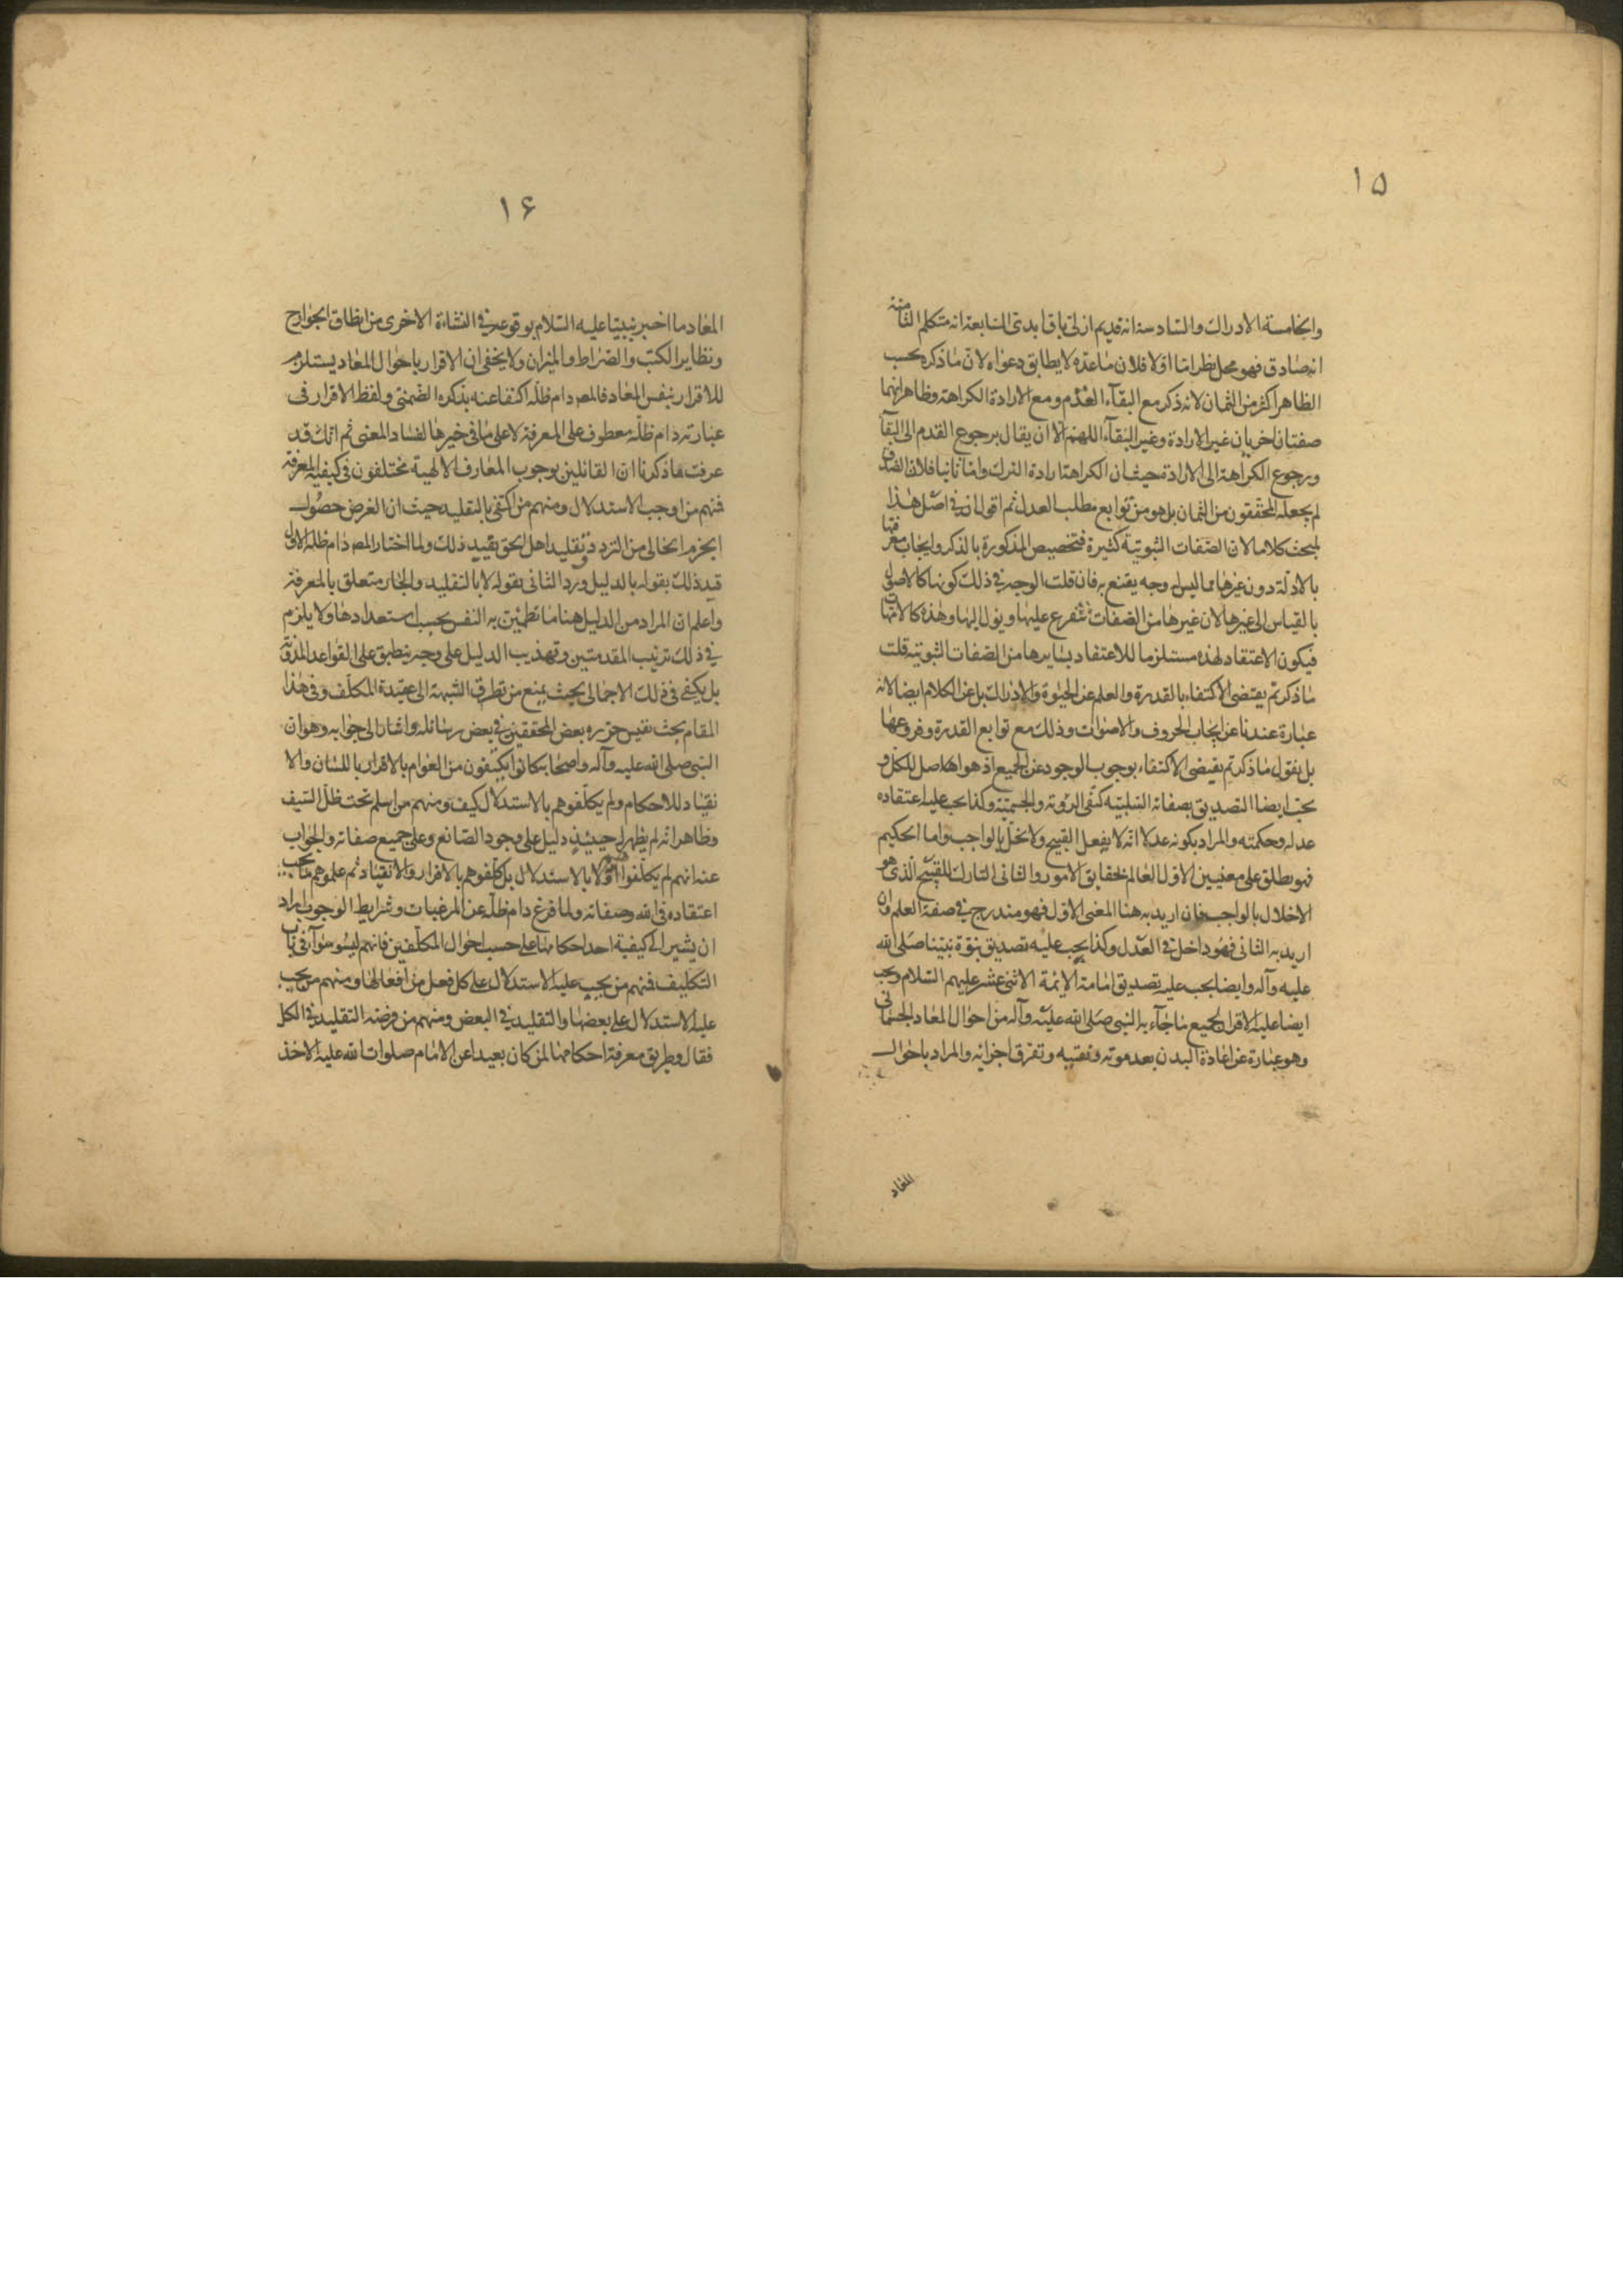 ١٥
والخامسة الادراك والسادسة انه قديم ازلى باق ابدى السابعة انه متكلم الثامنة
انه صادق فهو محل نظر اما اولا فلان ما عده لا يطابق دعواه لان ما ذكره بحسب
الظاهر اكثر من الثمان لانه ذكر مع البقآء القدم ومع الارادة الكراهة وظاهر انهما
صفتان اخريان غير الارادة وغير البقآء اللهم الا ان يقال برجوع القدم الى البقآ
ورجوع الكراهة الى الارادة حيث ان الكراهة ارادة الترك واما ثانيا فلان الصدق
لم يجعله المحققون من الثمان بل هو من توابع مطلب العدل ثم اقول ان فى اصل هذا
المبحث كلاما لان الصفات الثبوتية كثيرة فتخصيص المذكورة بالذكر وايجاب معرفتها
بالادلة دون غيرها مما ليس له وجه يقنع به فان قلت الوجه فى ذلك كونها كالاصول
بالقياس الى غيرها لان غيرها من الصفات تتفرع عليها ويؤل اليها وهذه كالامهات
فيكون الاعتقاد لهذه مستلزما للاعتقاد بسايرها من الصفات الثبوتية قلت
ما ذكرتم يقتضى الاكتفاء بالقدرة والعلم عن الحيوة والادراك بل عن الكلام ايضا لانه
عبارة عندنا عن ايجاب الحروف والاصوات وذلك مع توابع القدرة وفروعها
بل نقول ما ذكرتم يقيضى الاكتفاء بوجوب الوجود عن الجميع اذ هو اهلاصل للكل و
يجب ايضا التصديق بصفاته السلبية كنفى الرؤية والجسمية وكذا يجب عليه اعتقاده
عدله وحكمته والمراد بكونه عدلا انه لا يفعل القبيح ولا يخل بالواجب واما الحكيم
فهو يطلق على معنيين الاول العالم بحقايق الامور والثانى التارك للقبيح الذى هو
الاخلال بالواجب فان اريد به هنا المعنى الاول فهو مندرج فى صفة العلم وان
اريد به الثانى فهو داخل فى العدل وكذا يجب عليه تصديق نبوة نبينا صلى الله
عليه وآله وايضا يجب عليه تصديق امامة الائمة الاثنى عشر عليهم السلام ويجب
ايضا عليه الاقرار بجميع ما جآء به النبى صلى الله عليه وآله من احوال المعاد الجسمانى
وهو عبارة عن اعادة البدن بعد موته وتفتيه وتفرق اجزائه والمراد باحوال
المعاد
١۶
المعاد ما اخبر نبينا عليه السلام بوقوعه فى النشاءة الاخرى من انطاق الجوارح
ونظاير الكتب والصراط والميزان ولا يخفى ان الاقرار باحوال المعاد يستلزم
للاقرار بنفس المعاد فالمصر دام ظله اكتفا عنه بذكره الضمنى ولفظ الاقرار فى
عبارته دام ظله معطوف على المعرفة لا على ما فى خبرها لفساد المعنى ثم انك قد
عرفت ما ذكرنا ان القائلين بوجوب المعارف الالهية مختلفون فى كيفية المعرفة
فمنهم من اوجب الاستدلال ومنهم من اكتفى بالتقليد حيث ان الغرض حصول
الجزم الخالى من التردد وتقليد اهل الحق يفيد ذلك ولما اختار المصر دام ظله الاول
قيد ذلك بقوله بالدليل ورد الثانى بقوله لا بالتقليد والجار متعلق بالمعرفة
واعلم ان المراد من الدليل هنا ما تطمئن به النفس بحسب استعدادها ولا يلزم
فى ذلك ترتيب المقدمتين وتهذيب الدليل على وجه ينطبق على القواعد المدونة
بل يكفى فى ذلك الاجمالى بحيث يمنع من تطرق الشبهة الى عقيدة المكلف وفى هذا
المقام بحث نفيس حرره بعض المحققين فى بعض رسائله واشار الى جوابه وهو ان
النبى صلى الله عليه وآله واصحابه كانوا يكتفون من العوام بالاقرار باللسان والا
نقياد للاحكام ولم يكلفوهم بالاستدلال كيف ومنهم من اسلم تحت ظل السيف
وظاهر انه لم يظهر له حينئذ دليل على وجود الصانع وعلى جميع صفاته والجواب
عنه انهم لم يكلفوا اولا بالاستدلال بل كلفوهم بالاقرار والانقياد ثم علموهم ما يجب
اعتقاده فى الله وصفاته ولما فرغ دام ظله عن المرغبات وشرايط الوجوب اراد
ان يشير الى كيفية اخذ احكامها على حسب احوال المكلفين فانهم ليسو سوآء فى باب
التكليف فمنهم من يجب عليه الاستدلال على كل فعل من افعالها ومنهم من يجب
عليه الاستدلال على بعضها والتقليد فى البعض ومنهم من فرضه التقليد فى الكل
فقال وطريق معرفة احكامها لمن كان بعيدا عن الامام صلوات الله عليه الاخذ